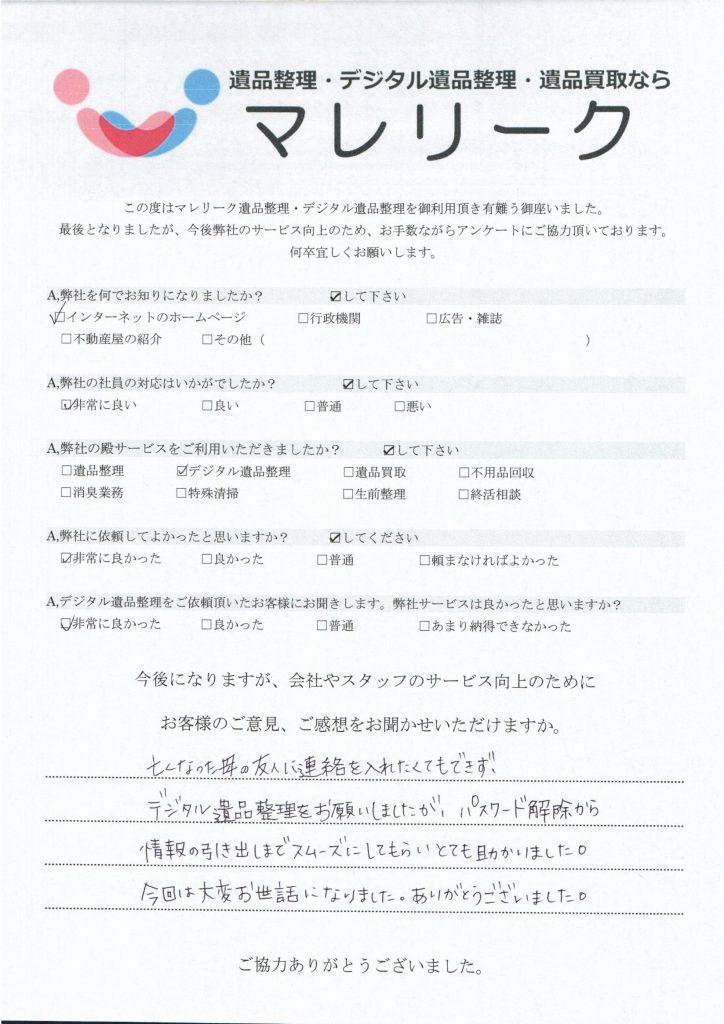 遺品整理・デジタル遺品整理・遺品買取なら
マレリーク
この度はマレリーク遺品整理・デジタル遺品整理を御利用頂き有難う御座いました。
最後となりましたが、今後弊社のサービス向上のため、お手数ながらアンケートにご協力頂いております。
何卒宜しくお願いします。
A,弊社を何でお知りになりましたか？ ☑して下さい
☑インターネットのホームページ □行政機関 □広告・雑誌
□不動産屋の紹介 □その他（ ）
A,弊社の社員の対応はいかがでしたか？ ☑して下さい
☑非常に良い □良い □普通 □悪い
A,弊社の殿サービスをご利用いただきましたか？ ☑して下さい
□遺品整理 ☑デジタル遺品整理 □遺品買取 □不用品回収
□消臭業務 □特殊清掃 □生前整理 □終活相談
A,弊社に依頼してよかったと思いますか？ ☑してください
☑非常に良かった □良かった □普通 □頼まなければよかった
A,デジタル遺品整理をご依頼頂いたお客様にお聞きします。弊社サービスは良かったと思いますか？
☑非常に良かった □良かった □普通 □あまり納得できなかった
今後になりますが、会社やスタッフのサービス向上のために
お客様のご意見、ご感想をお聞かせいただけますか。
亡くなった母の友人に連絡を入れたくてもできず、
デジタル遺品整理をお願いしましたが、パスワード解除から
情報の引き出しまでスムーズにしてもらいとても助かりました。
今回は大変お世話になりました。ありがとうございました。
ご協力ありがとうございました。